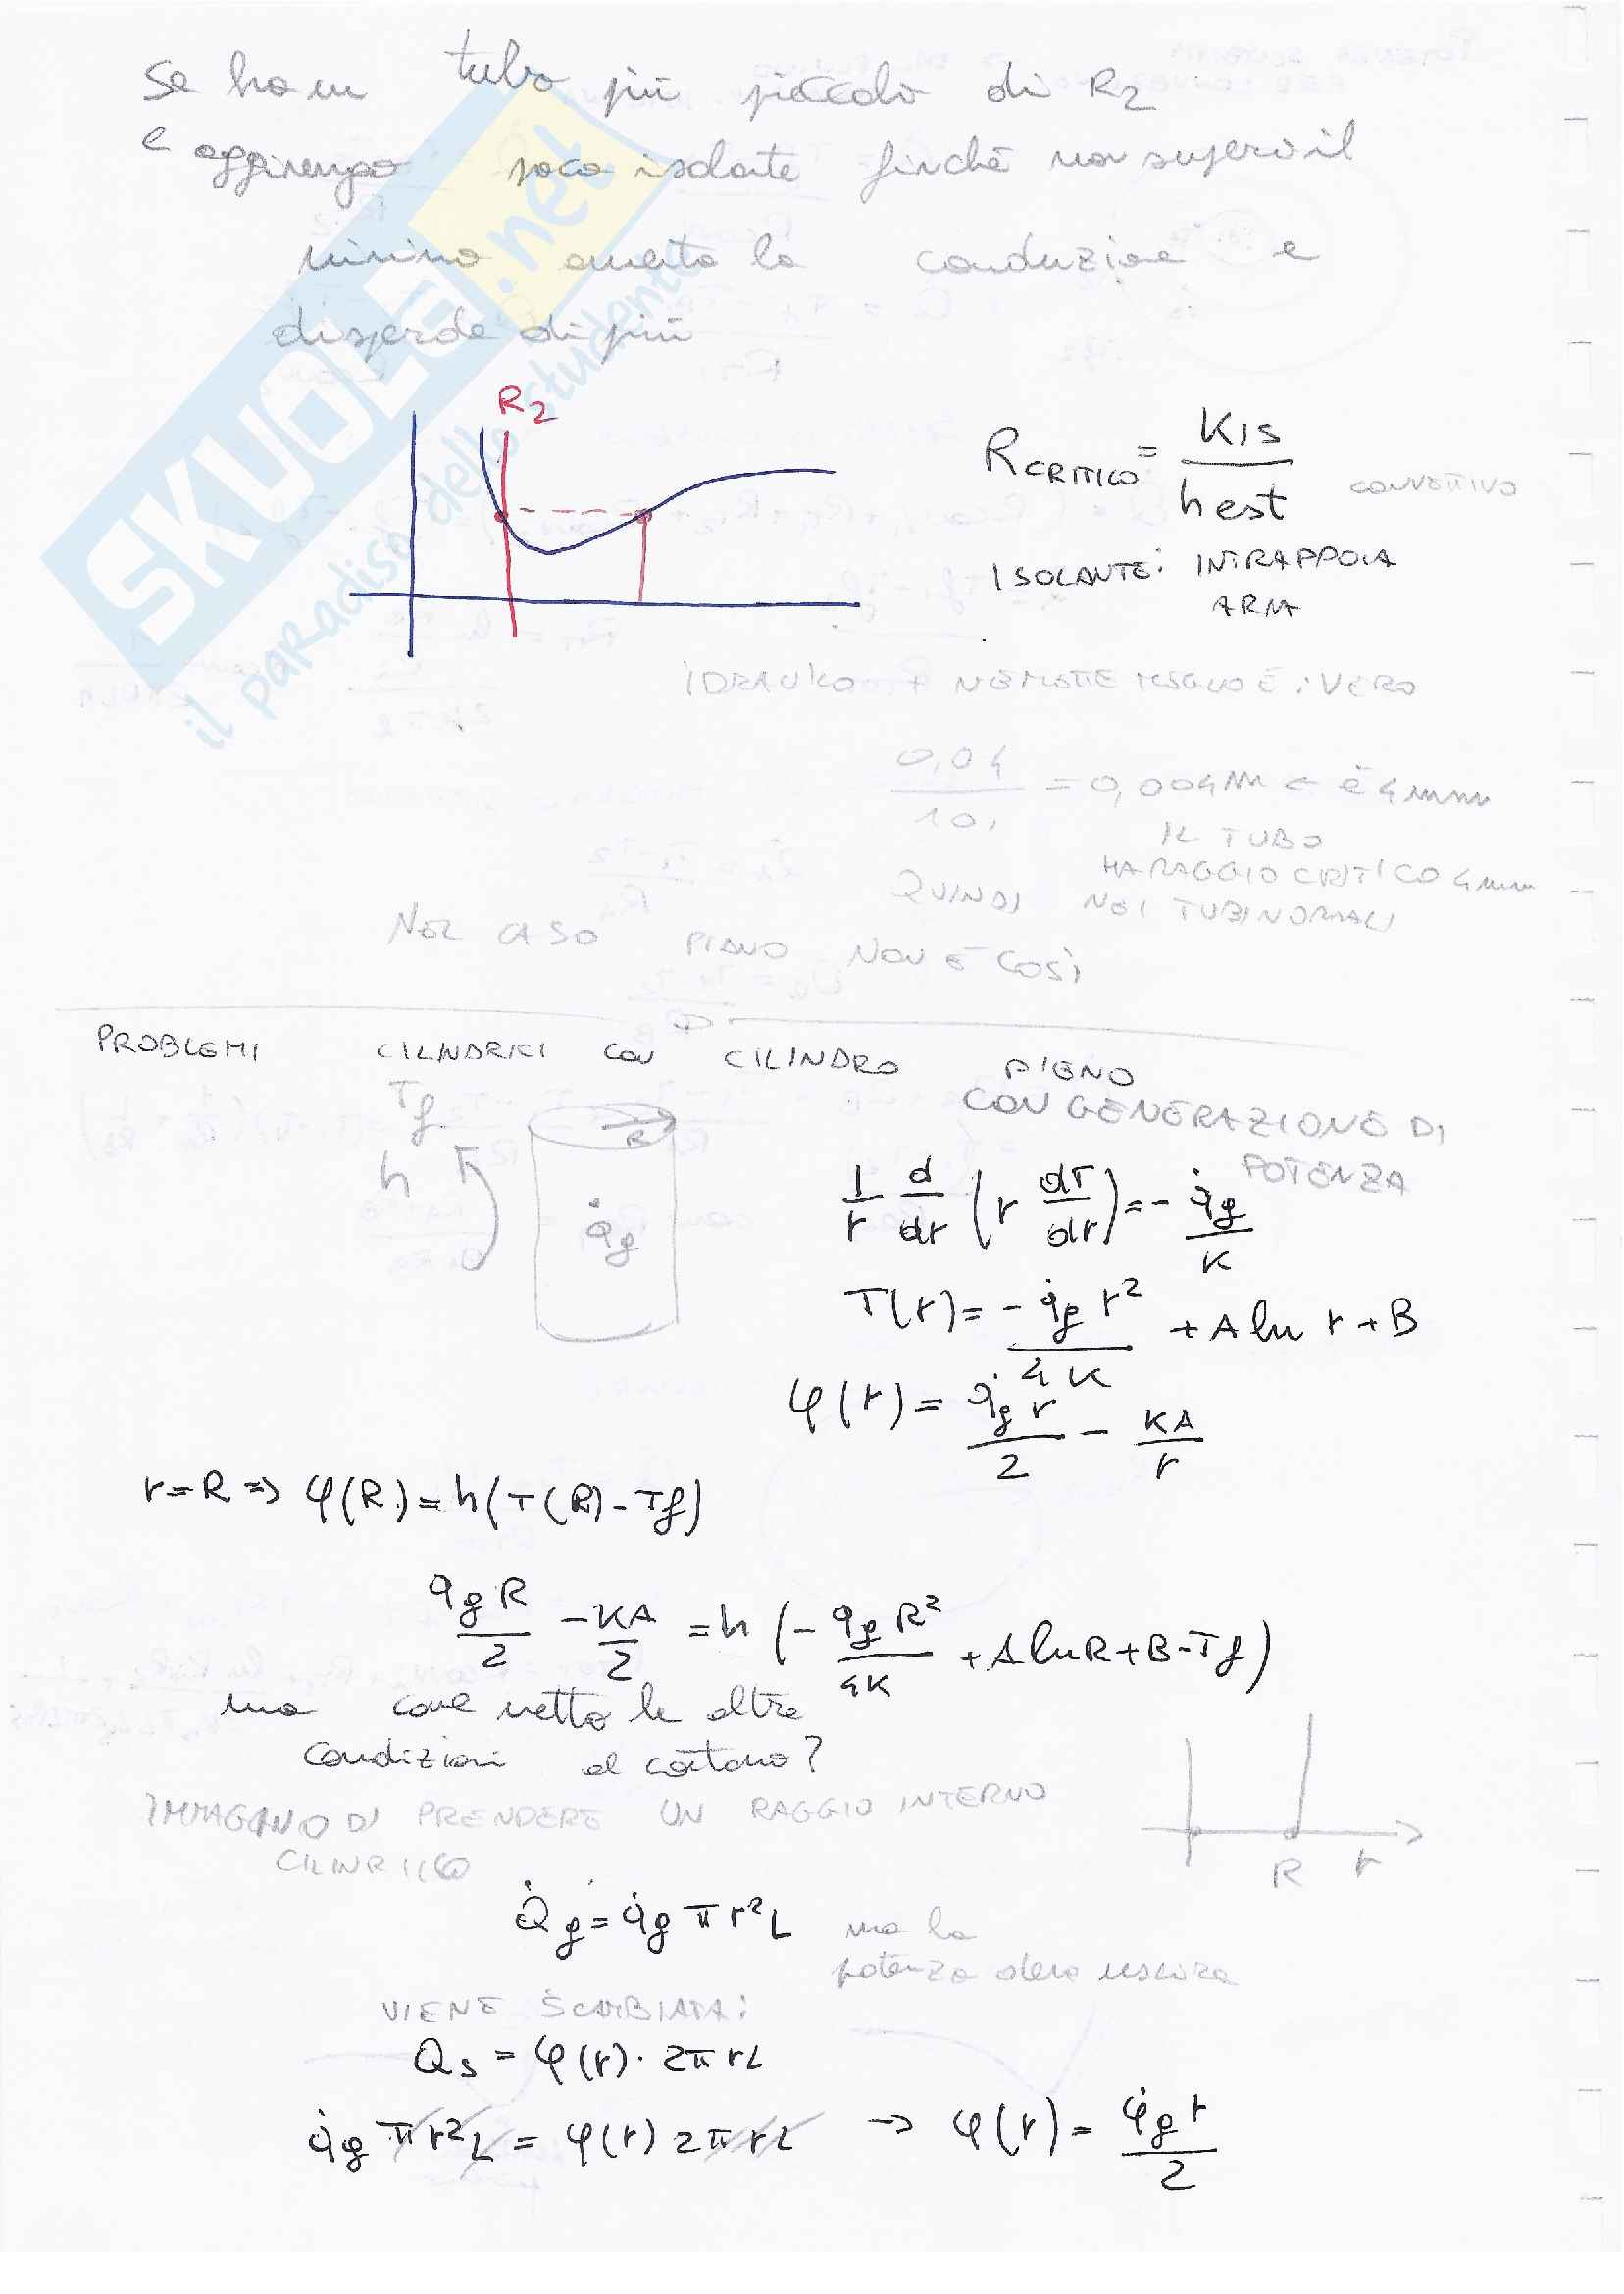 Se ho un tubo più piccolo di R2
e aggiungo poco isolate finchè non supero il
minimo aumeta la conduzione e
disperde di più
SKUOLA.net
il paradiso dello studente
R2
RCRITICO = KIS / h est CONVETTIVO
ISOLANTE: INTRAPPOLA
ARIA
IDRAULICO + NE METTE MEGLIO È : VERO
0,04 / 10, = 0,004 M ← È 4 mm
IL TUBO
HA RAGGIO CRITICO 4 mm
QUINDI NEI TUBI NORMALI
NEL CASO PIANO NON È COSÌ
PROBLEMI CILINDRICI CON CILINDRO PIENO
CON GENERAZIONE DI
POTENZA
Tf
h
R
q̇g
1/r d/dr (r dT/dr) = - q̇g/K
T(r) = - q̇g r²/4K + A ln r + B
φ(r) = q̇g r/2 - KA/r
r=R => φ(R) = h(T(R) - Tf)
qg R/2 - KA/2 = h (- qg R²/4K + A ln R + B - Tf)
ma come metto le altre
condizioni al cotorno?
IMMAGINO DI PRENDERE UN RAGGIO INTERNO
CILINRICO
R r
Q̇g = q̇g π r² L ma la
potenza deve uscire
VIENE SCAMBIATA:
Qs = φ(r) · 2π r L
q̇g π r² L = φ(r) 2π r L → φ(r) = φ̇g r/2